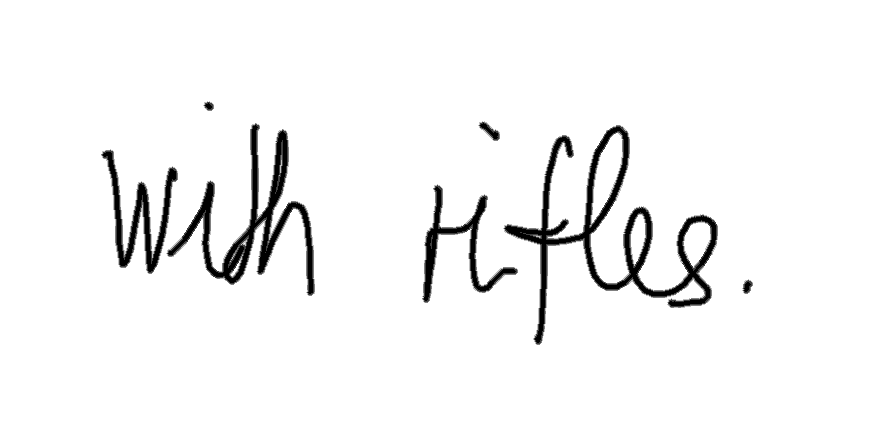 with rifles.